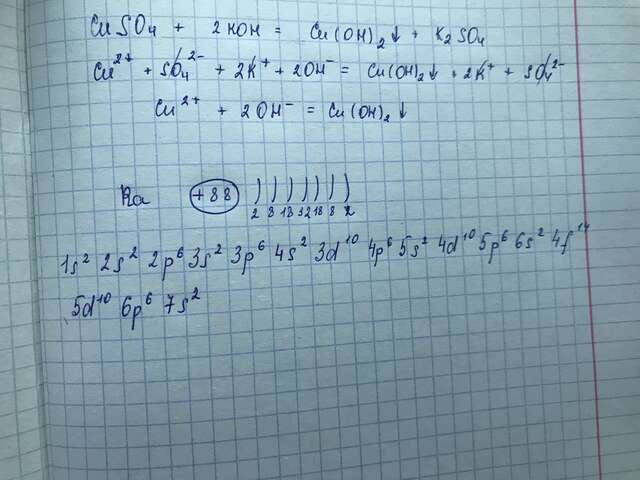 CuSO₄ + 2KOH = Cu(OH)₂↓ + K₂SO₄
Cu²⁺ + SO₄²⁻ + 2K⁺ + 2OH⁻ = Cu(OH)₂↓ + 2K⁺ + SO₄²⁻
Cu²⁺ + 2OH⁻ = Cu(OH)₂↓
Ra +88 ) ) ) ) ) ) )
2 8 18 32 18 8 2
1s² 2s² 2p⁶ 3s² 3p⁶ 4s² 3d¹⁰ 4p⁶ 5s² 4d¹⁰ 5p⁶ 6s² 4f¹⁴
5d¹⁰ 6p⁶ 7s²